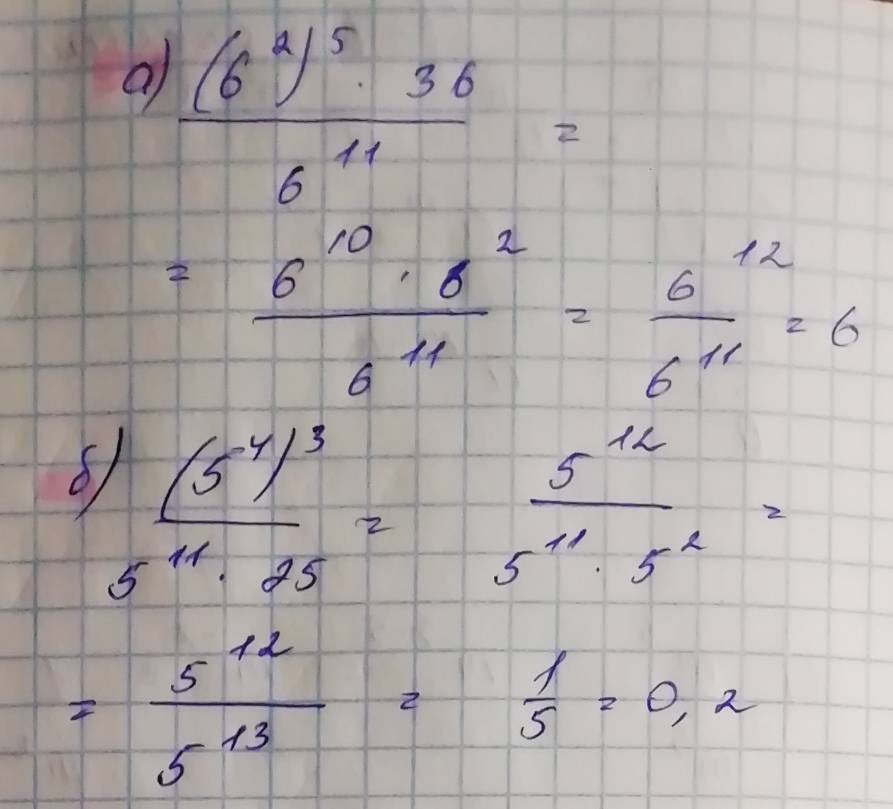 а) (6²)⁵ · 36 / 6¹¹ =
= 6¹⁰ · 6² / 6¹¹ = 6¹² / 6¹¹ = 6
б) (5⁴)³ / 5¹¹ · 25 = 5¹² / 5¹¹ · 5² =
= 5¹² / 5¹³ = 1/5 = 0,2